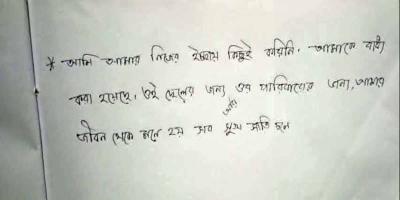 * আমি আমার নিজের ইচ্ছায় কিছুই করিনি। আমাকে বাধ্য
করা হয়েছে, ওই ছেলের জন্য ওর পরিবারের জন্য, আমার
জীবন থেকে মনে হয় সব সুখ শান্তি